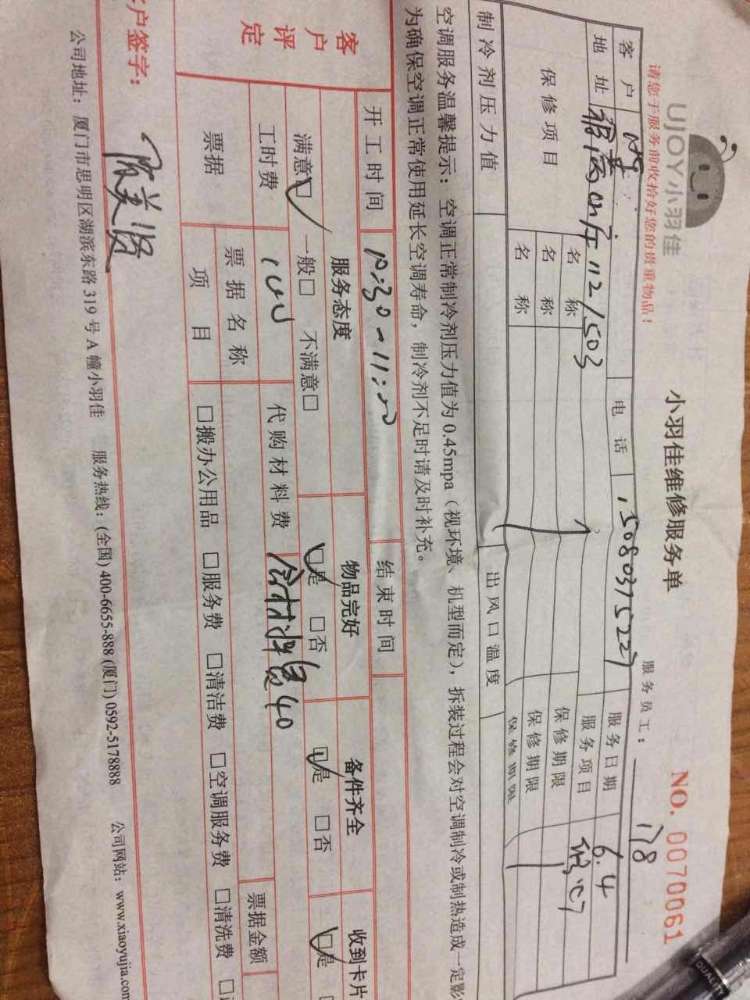 UJOY小羽佳
小羽佳维修服务单
NO. 0070061
请您于服务前收拾好您的贵重物品!
服务员工: 178
客户 电话 15080375227 服务日期 6.4
地址 112/503 服务项目
保修项目 名称 保修期限
名称 保修期限
名称 保修期限
制冷剂压力值 出风口温度
空调服务温馨提示: 空调正常制冷剂压力值为 0.45mpa (视环境、机型而定), 拆装过程会对空调制冷或制热造成一定影
为确保空调正常使用延长空调寿命, 制冷剂不足时请及时补充。
开工时间 10:30-11:20 结束时间
客户评定
服务态度 物品完好 备件齐全 收到卡片
满意☑ 一般□ 不满意□ ☑是 □否 ☑是 □否 ☑是
工时费 100 代购材料费 含材料费40
票据 票据名称 票据金额
项目 □搬办公用品 □服务费 □清洁费 □空调服务费 □清洗费
户签字: 陈美贤
公司地址: 厦门市思明区湖滨东路 319 号 A 幢小羽佳 服务热线: (全国) 400-6655-888 (厦门) 0592-5178888 公司网站: www.xiaoyujia.com
QUALITY